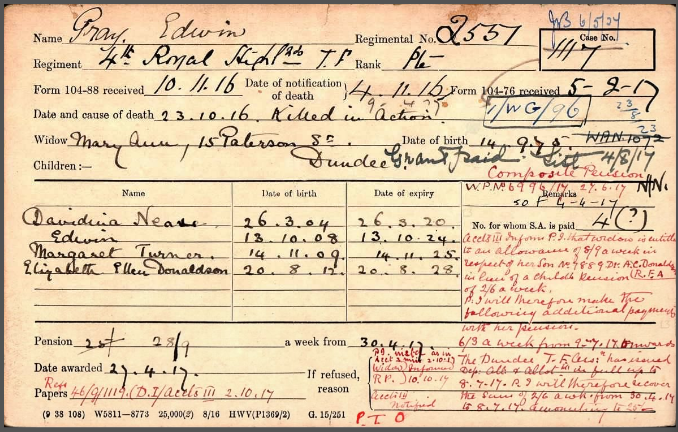 JWB 6/5/27
Name Gray, Edwin Regimental No. 2551 Case No. 1117
Regiment 4th Royal Highrs T.F Rank Pte
Form 104-88 received 10.11.16 Date of notification of death 4.11.16 Form 104-76 received 5-2-17
Date and cause of death 23.10.16. Killed in Action. 1/WG/96 23/8/17
Widow Mary Ann, 15 Paterson St. Dundee Date of birth 14.9.75.
Children:— Grant paid. List 4/8/17
Composite Pension
W.P.No 6996/17 27.6.17
Name Date of birth Date of expiry Remarks
SO F 4-4-17
No. for whom S.A. is paid 4(?)
Davidina 26.3.04 26.3.20.
Edwin 13.10.08 13.10.24.
Margaret Turner. 14.11.09. 14.11.25.
Elizabeth Ellen Donaldson 20.8.12. 20.8.28.
Accts III Inform P.I. that widow is entitled
to an allowance of 8/9 a week in
respect of her Son No 7889 Dr. A.C. Donaldson
(R.F.A in lieu of a child's Pension
of 2/6 a week.
P.I will therefore make the
following additional payment
with her pension.
6/3 a week from 9-7-17 onwards
The Dundee T.F. Assn has issued
Sep: Allce & Allot full up to
8.7.17. P.I will therefore recover
the sum of 2/6 a wk from 30.4.17
to 8.7.17. amounting to 25/-
Pension 28/9 a week from 30.4.17.
Date awarded 27.4.17. If refused, reason
Papers 46/9/1119. (D.I/Accts III 2.10.17
Widow Informed
R.P.) 10.10.17
Accts III
Notified
(9 38 108) W5811—8773 25,000(2) 8/16 HWV(P1369/2) G. 15/251
P.T.O